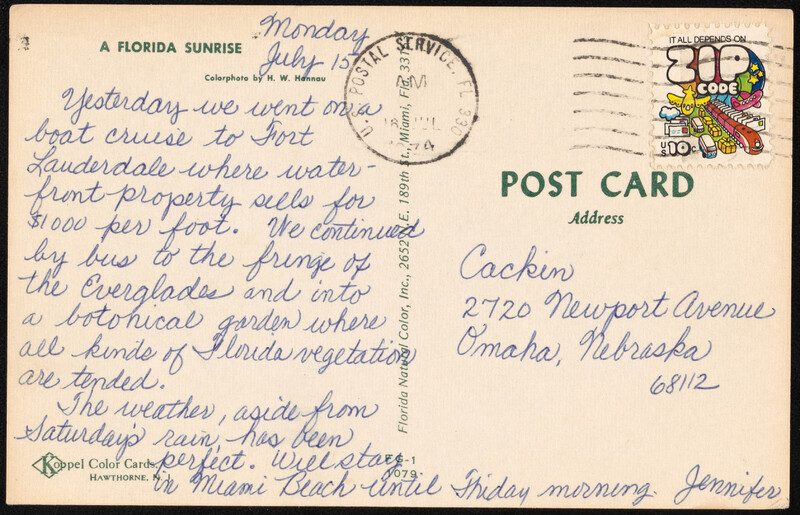 A FLORIDA SUNRISE
Colorphoto by H. W. Hannau
Monday
July 15
Yesterday we went on a
boat cruise to Fort
Lauderdale where water-
front property sells for
$1000 per foot. We continued
by bus to the fringe of
the Everglades and into
a botonical garden where
all kinds of Florida vegetation
are tended.
The weather, aside from
Saturday's rain, has been
perfect. Will stay
in Miami Beach until Friday morning. Jennifer
Koppel Color Cards
HAWTHORNE, N. J.
FG-1
Florida Natural Color, Inc., 2652 N.E. 189th St., Miami, Fla. 331
U.S. POSTAL SERVICE, FL 330
AM
JUL
IT ALL DEPENDS ON
ZIP
CODE
US 10c
POST CARD
Address
Cackin
2720 Newport Avenue
Omaha, Nebraska
68112